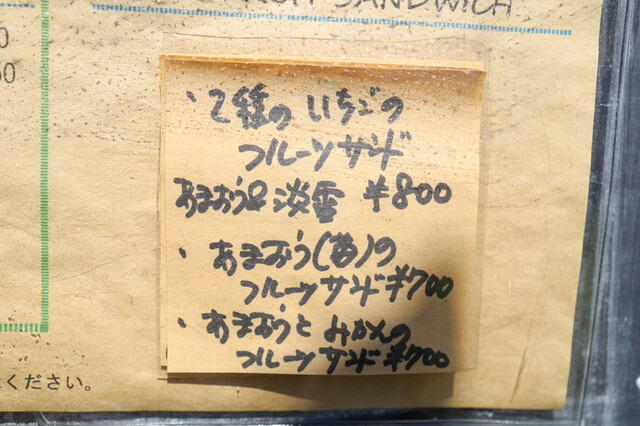 SANDWICH
0
50
・2種のいちごの
フルーツサンド
あまおう&淡雪 ¥800
・あまおう(苺)の
フルーツサンド¥700
・あまおうとみかんの
フルーツサンド¥700
ください。